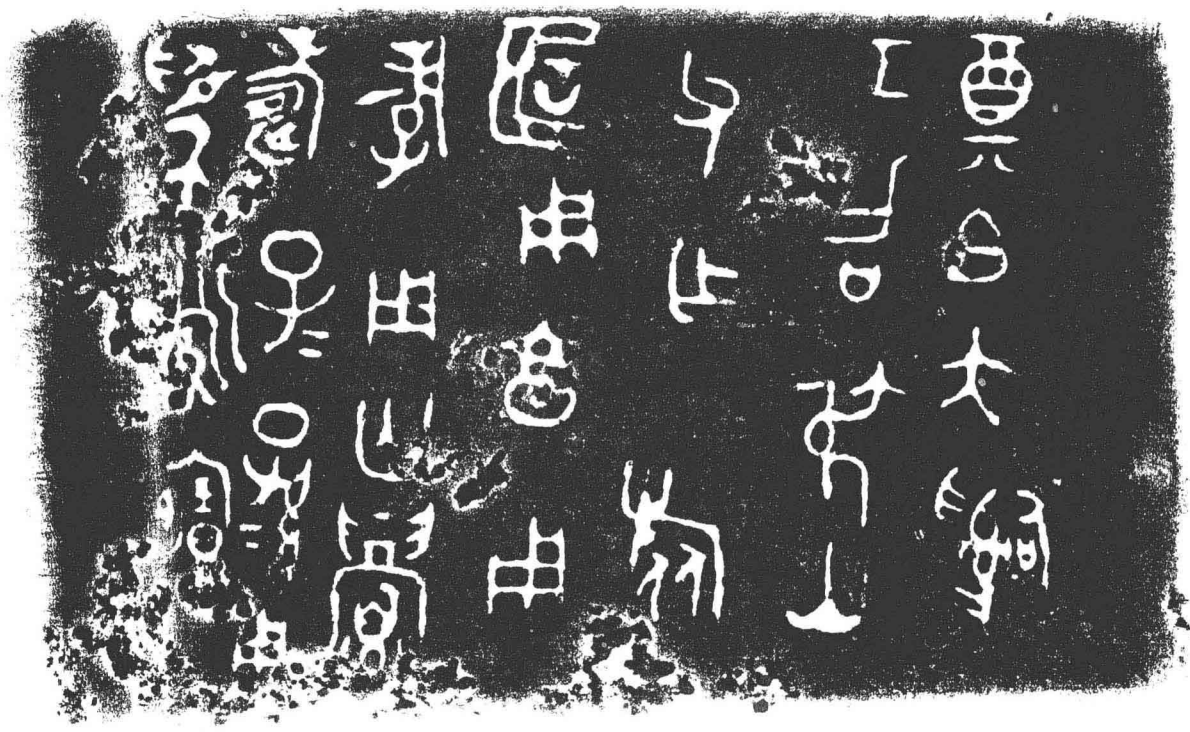 奠白大嗣
工召弔山
父乍旅
𠤳用亯用
孝用匄眉
壽子=孫=用
為永寶